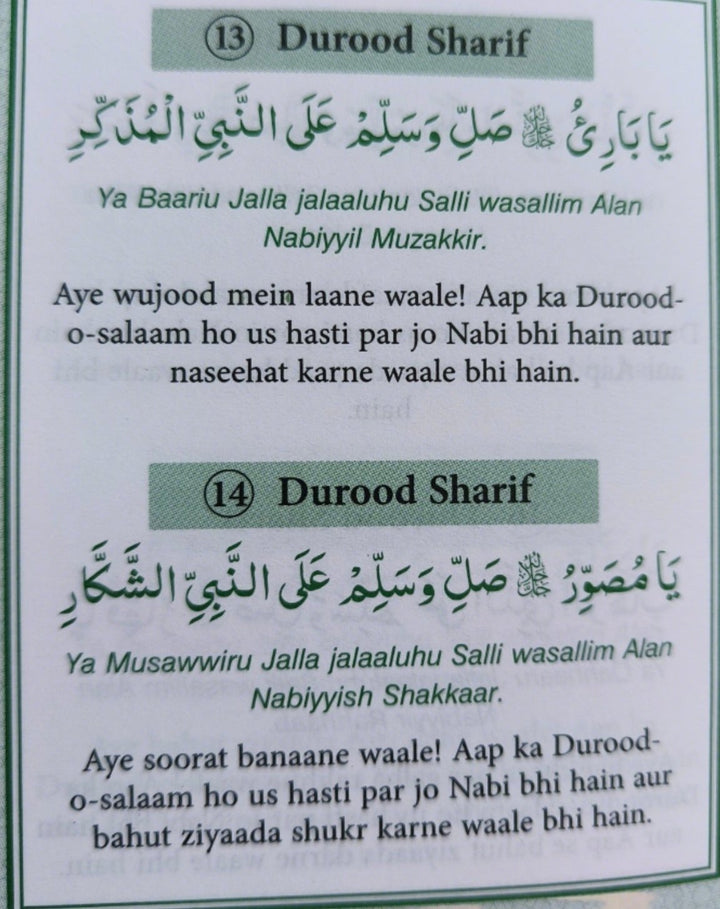 13 Durood Sharif
يَا بَارِئُ ﷻ صَلِّ وَسَلِّمْ عَلَى النَّبِيِّ الْمُذَكِّرِ
Ya Baariu Jalla jalaaluhu Salli wasallim Alan
Nabiyyil Muzakkir.
Aye wujood mein laane waale! Aap ka Durood-
o-salaam ho us hasti par jo Nabi bhi hain aur
naseehat karne waale bhi hain.
14 Durood Sharif
يَا مُصَوِّرُ ﷻ صَلِّ وَسَلِّمْ عَلَى النَّبِيِّ الشَّكَّارِ
Ya Musawwiru Jalla jalaaluhu Salli wasallim Alan
Nabiyyish Shakkaar.
Aye soorat banaane waale! Aap ka Durood-
o-salaam ho us hasti par jo Nabi bhi hain aur
bahut ziyaada shukr karne waale bhi hain.